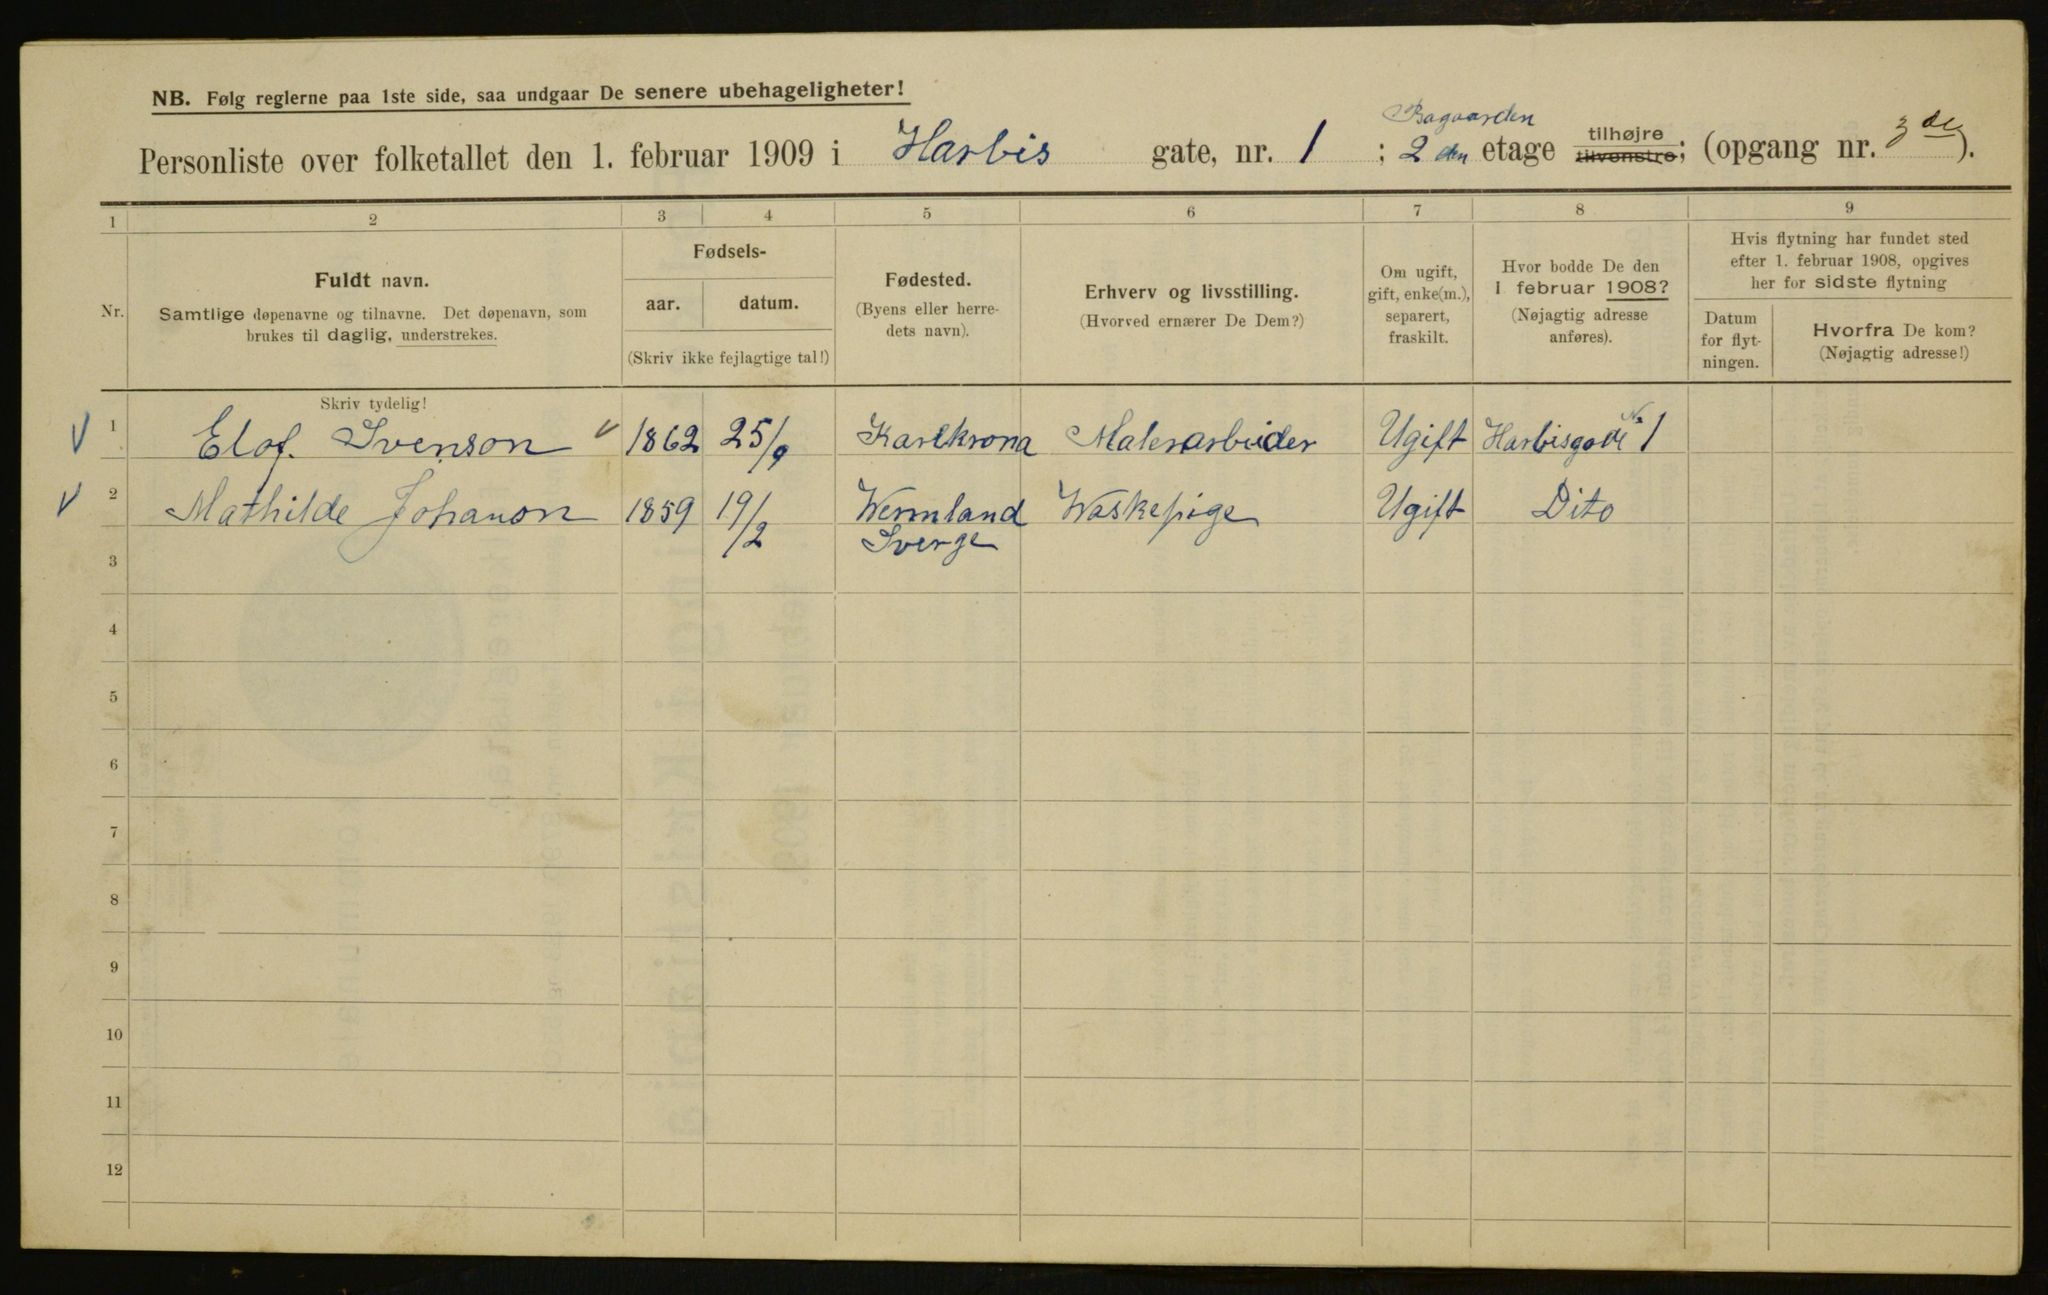 NB. Følg reglerne paa 1ste side, saa undgaar De senere ubehageligheter!
Bagaarden
Personliste over folketallet den 1. februar 1909 i Harbis gate, nr. 1 ; 2 den etage tilhøjre tilvenstre; (opgang nr. 3 de).
1 2 3 4 5 6 7 8 9
Nr.
Fuldt navn.
Samtlige døpenavne og tilnavne. Det døpenavn, som
brukes til daglig, understrekes.
Fødsels-
aar. datum.
(Skriv ikke fejlagtige tal!)
Fødested.
(Byens eller herre-
dets navn).
Erhverv og livsstilling.
(Hvorved ernærer De Dem?)
Om ugift,
gift, enke(m.),
separert,
fraskilt.
Hvor bodde De den
1 februar 1908?
(Nøjagtig adresse
anføres).
Hvis flytning har fundet sted
efter 1. februar 1908, opgives
her for sidste flytning
Datum
for flyt-
ningen.
Hvorfra De kom?
(Nøjagtig adresse!)
Skriv tydelig!
V 1 Elof. Svenson V 1862 25/9 Karlkrona Malerarbeider Ugift Harbisgade No 1
V 2 Mathilde Johanson 1859 19/2 Wermland Waskepige Ugift Dito
Sverge
3
4
5
6
7
8
9
10
11
12